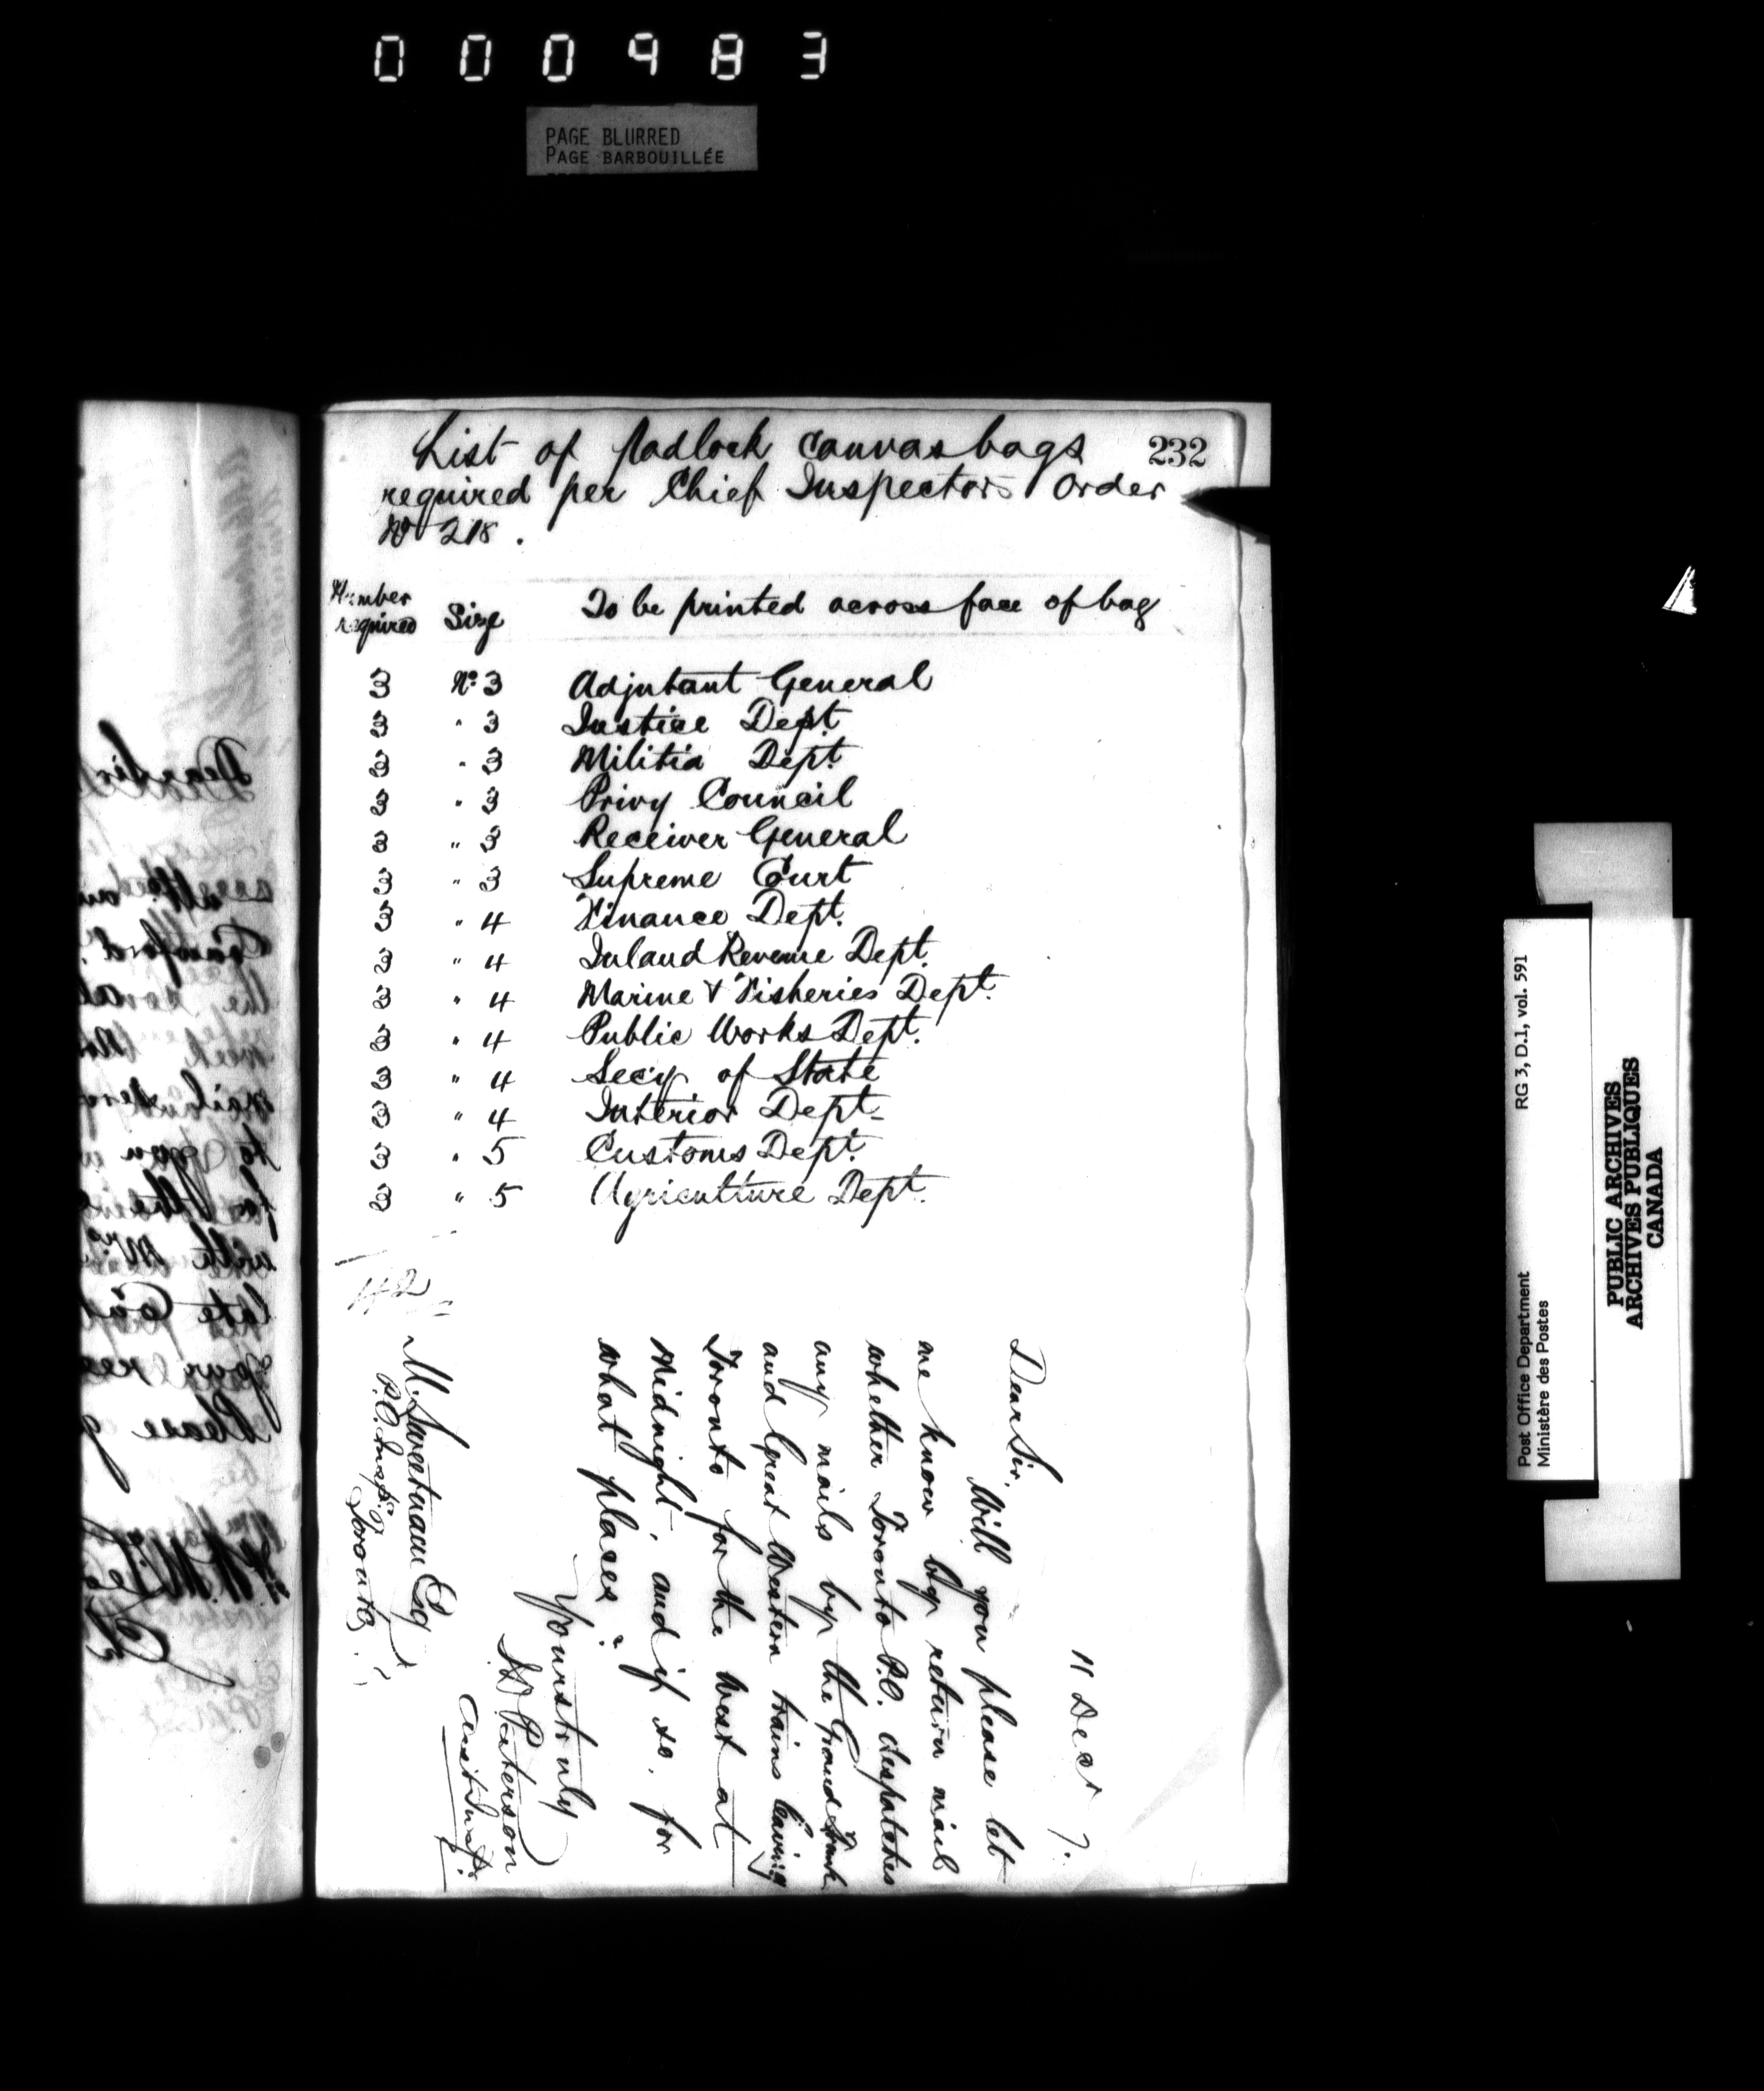 000983
PAGE BLURRED
PAGE BARBOUILLÉE
232
List of Padlock Canvas bags
required per Chief Inspectors Order
No 218.
Number required Size To be printed across face of bag
3 No. 3 Adjutant General
3 " 3 Justice Dept
3 " 3 Militia Dept
3 " 3 Privy Council
3 " 3 Receiver General
3 " 3 Supreme Court
3 " 4 Finance Dept.
3 " 4 Inland Revenue Dept.
3 " 4 Marine & Fisheries Dept.
3 " 4 Public Works Dept.
3 " 4 Secy of State
3 " 4 Interior Dept.
3 " 5 Customs Dept.
3 " 5 Agriculture Dept.
42
11 Decr 7.
Dear Sir,
Will you please let
me know by return mail
whether Toronto P.O. despatches
any mails by the Grand Trunk
and Great Western trains leaving
Toronto for the West at
Midnight, and if so, for
what places.
Yours truly
Paterson
Asst Inspr.
M. Sweetnam Esq
P.O. Inspr.
Toronto.
Dear Sir
the
to you
with Mr
late
Please
Post Office Department RG 3, D.1, vol. 591
Ministère des Postes
PUBLIC ARCHIVES
ARCHIVES PUBLIQUES
CANADA